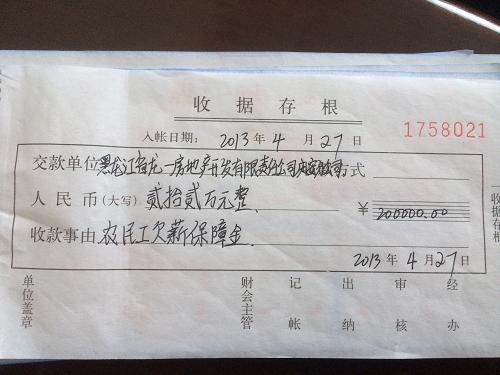 收据存根
入帐日期: 2013年4月27日
1758021
交款单位黑龙江省龙一房地产开发有限责任公司式
人民币(大写)贰拾贰万元整 ¥200000.00
收款事由农民工欠薪保障金
2013年4月27日
收据存根
单位盖章
财会主管
记帐
出纳
审核
经办